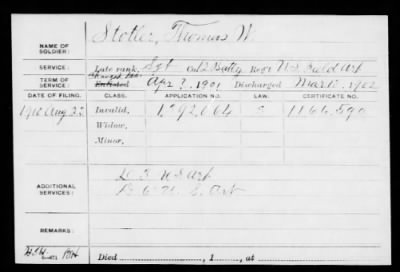 Stotler, Thomas W.
NAME OF SOLDIER:
SERVICE: Late rank, Sgt Batty Reg't U.S. Field Art
TERM OF SERVICE: Enlisted Apr 1901 Discharged Mar 1902
DATE OF FILING. CLASS. APPLICATION NO. LAW. CERTIFICATE NO.
1910 Aug Invalid, 1166590
Widow,
Minor,
ADDITIONAL SERVICES: D 3 U S Art
D 6 U. S. Art
REMARKS:
Died , 1 , at